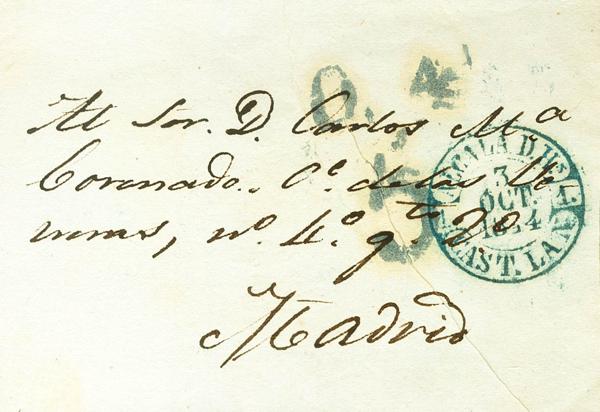 Al Sor. D. Carlos Mª
Coronado. C.e de las Ve
neras, nº. 4º. qto 2º
Madrid
ALCALA D HE.
3
OCT.
CAST. LA N.